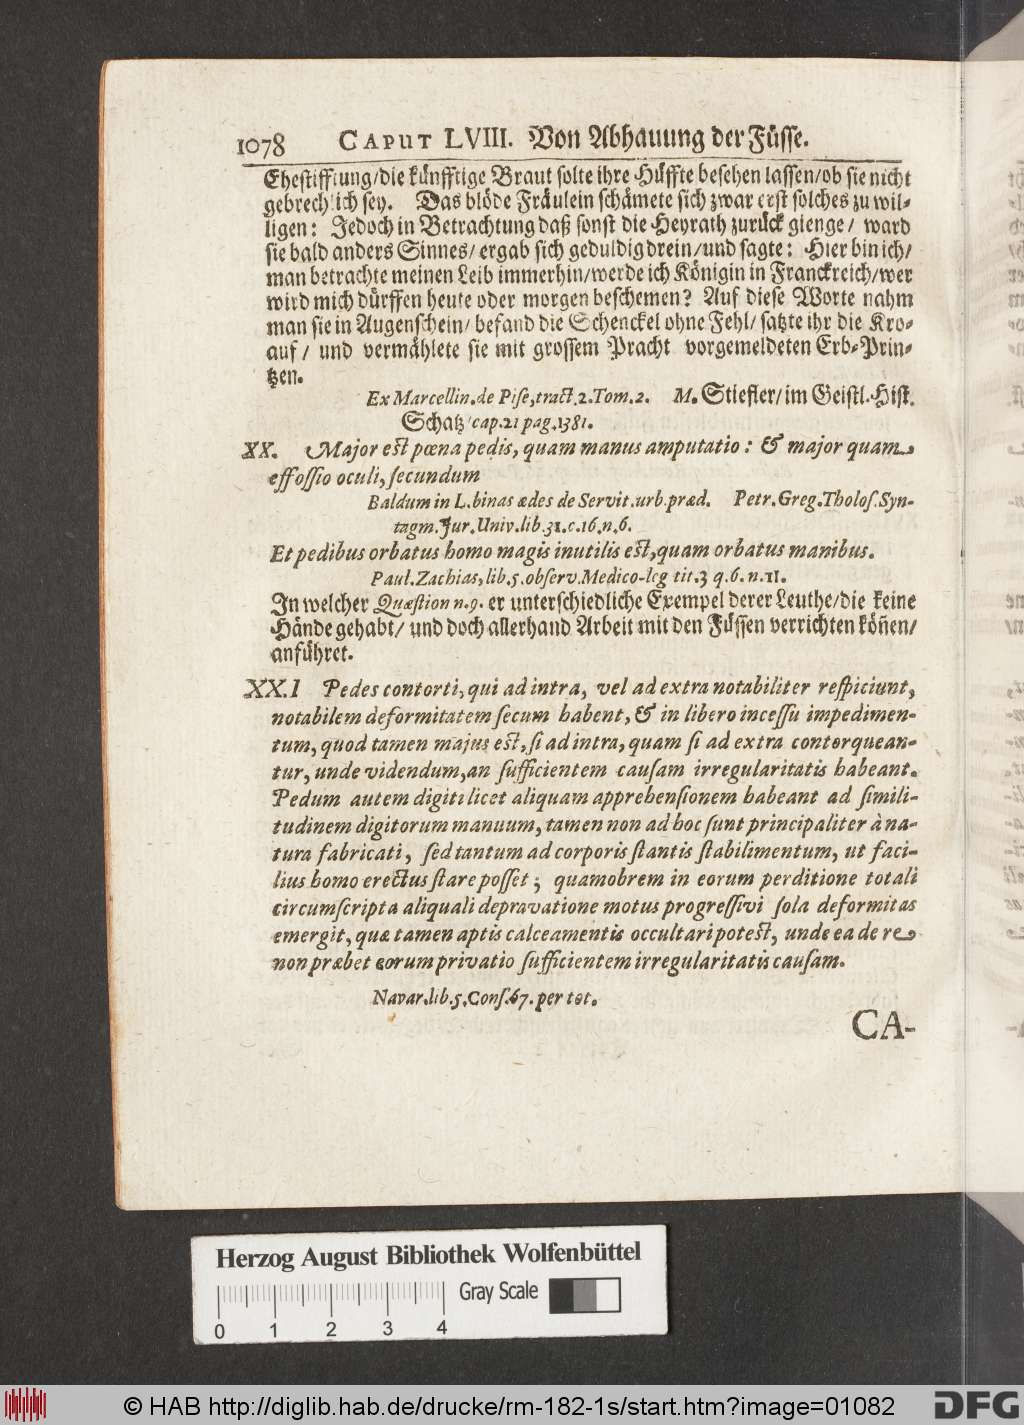 1078 CAPUT LVIII. Von Abhauung der Füsse.
Ehestifftung/die künfftige Braut solte ihre Hüffte besehen lassen/ob sie nicht
gebrechlich sey. Das blöde Fräulein schämete sich zwar erst solches zu wil-
ligen: Jedoch in Betrachtung daß sonst die Heyrath zurück gienge/ ward
sie bald anders Sinnes/ ergab sich geduldig drein/und sagte: Hier bin ich/
man betrachte meinen Leib immerhin/werde ich Königin in Franckreich/wer
wird mich dürffen heute oder morgen beschemen? Auf diese Worte nahm
man sie in Augenschein/ befand die Schenckel ohne Fehl/ satzte ihr die Kro-
auf/ und vermählete sie mit grossem Pracht vorgemeldeten Erb-Prin-
tzen.
Ex Marcellin.de Pise,tract.2.Tom.2. M. Stiefler/im Geistl.Hist.
Schatz cap.21 pag.1381.
XX. Major est pœna pedis, quam manus amputatio: & major quam
effossio oculi, secundum
Baldum in L.binas ædes de Servit.urb.præd. Petr.Greg.Tholos.Syn-
tagm.Jur.Univ.lib.31.c.16.n.6.
Et pedibus orbatus homo magis inutilis est,quam orbatus manibus.
Paul.Zachias,lib.5.observ.Medico-leg tit.3 q.6.n.11.
In welcher Quæstion n.9. er unterschiedliche Exempel derer Leuthe/die keine
Hände gehabt/ und doch allerhand Arbeit mit den Füssen verrichten köñen/
anführet.
XX.I Pedes contorti, qui ad intra, vel ad extra notabiliter respiciunt,
notabilem deformitatem secum habent, & in libero incessu impedimen-
tum, quod tamen majus est, si ad intra, quam si ad extra contorquean-
tur, unde videndum,an sufficientem causam irregularitatis habeant.
Pedum autem digiti licet aliquam apprehensionem habeant ad simili-
tudinem digitorum manuum, tamen non ad hoc sunt principaliter à na-
tura fabricati, sed tantum ad corporis stantis stabilimentum, ut faci-
lius homo erectus stare posset; quamobrem in eorum perditione totali
circumscripta aliquali depravatione motus progressivi sola deformitas
emergit, quæ tamen aptis calceamentis occultari potest, unde ea de re
non præbet eorum privatio sufficientem irregularitatis causam.
Navar.lib.5.Cons.67. per tot.
CA-
Herzog August Bibliothek Wolfenbüttel
Gray Scale
0 1 2 3 4
© HAB http://diglib.hab.de/drucke/rm-182-1s/start.htm?image=01082
DFG